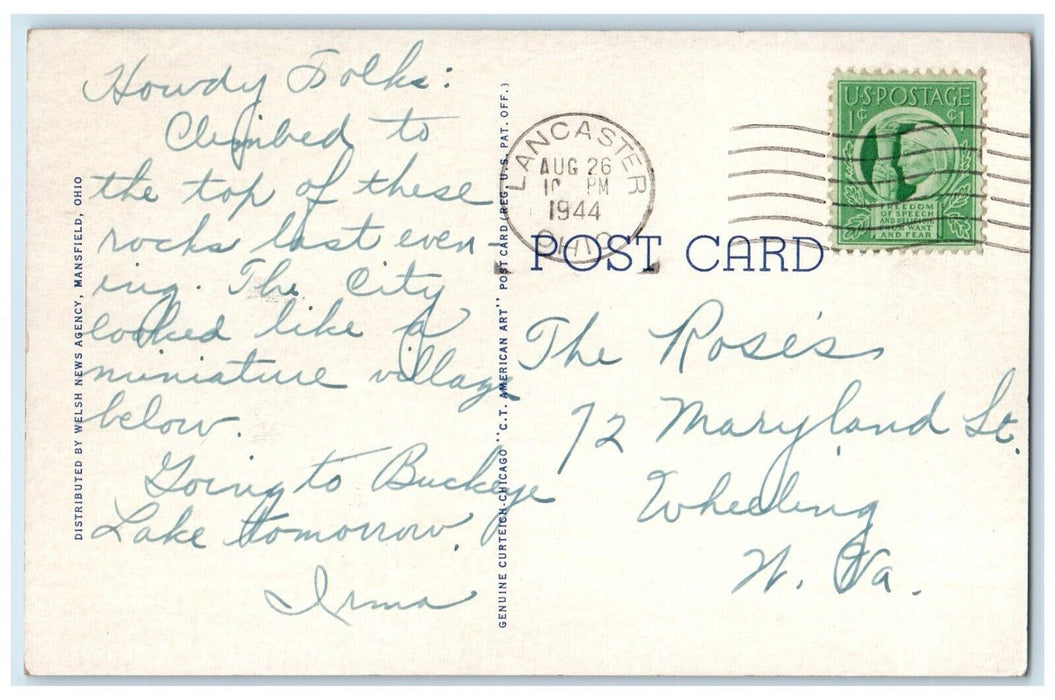 Howdy Folks:
Climbed to
the top of these
rocks last even-
ing. The City
looked like a
miniature village
below.
Going to Buckeye
Lake tomorrow.
Irma
DISTRIBUTED BY WELSH NEWS AGENCY, MANSFIELD, OHIO
GENUINE CURTEICH-CHICAGO "C.T. AMERICAN ART" POST CARD (REG. U.S. PAT. OFF.)
LANCASTER
AUG 26
PM
1944
OHIO
U.S. POSTAGE
1¢ ¢1
FREEDOM
OF SPEECH
AND RELIGION,
FROM WANT
AND FEAR
POST CARD
The Rose's
72 Maryland St.
Wheeling
W. Va.